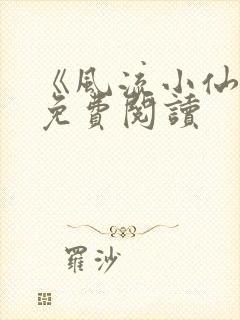 《風流小仙
免費閱讀
羅沙